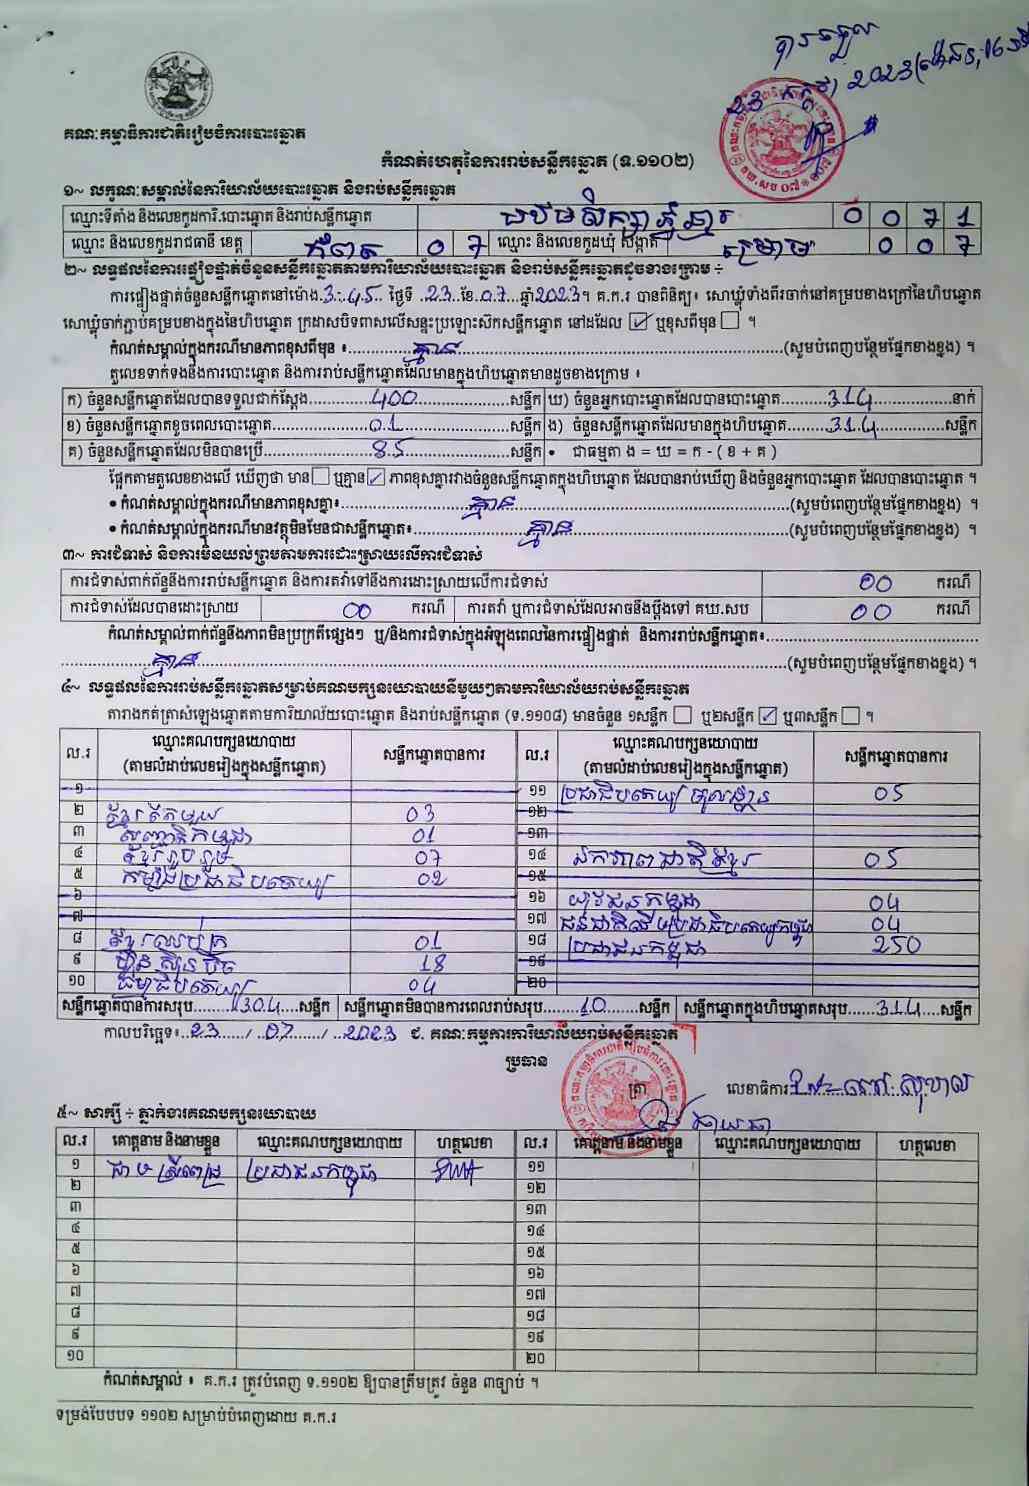 គណៈកម្មាធិការជាតិរៀបចំការបោះឆ្នោត
កំណត់ហេតុនៃការរាប់សន្លឹកឆ្នោត (ទ.១១០២)
១~ លក្ខណៈសម្គាល់នៃការិយាល័យបោះឆ្នោត និងរាប់សន្លឹកឆ្នោត
ឈ្មោះទីតាំង និងលេខកូដការិ.បោះឆ្នោត និងរាប់សន្លឹកឆ្នោត 0 0 7 1
ឈ្មោះ និងលេខកូដរាជធានី ខេត្ត កំពត 0 7 ឈ្មោះ និងលេខកូដឃុំ សង្កាត់ 0 0 7
២~ លទ្ធផលនៃការផ្ទៀងផ្ទាត់ចំនួនសន្លឹកឆ្នោតតាមការិយាល័យបោះឆ្នោត និងរាប់សន្លឹកឆ្នោតដូចខាងក្រោម ÷
ការផ្ទៀងផ្ទាត់ចំនួនសន្លឹកឆ្នោតនៅម៉ោង 3:45 ថ្ងៃទី 23 ខែ 07 ឆ្នាំ 2023។ គ.ក.រ បានពិនិត្យ៖ សោឃ្លុំទាំងពីរចាក់នៅគម្របខាងក្រៅនៃហិបឆ្នោត
សោឃ្លុំចាក់ភ្ជាប់គម្របខាងក្នុងនៃហិបឆ្នោត ក្រដាសបិទពាសលើសន្ទះប្រឡោះស៊កសន្លឹកឆ្នោត នៅដដែល ☑ ឬខុសពីមុន ☐ ។
កំណត់សម្គាល់ក្នុងករណីមានភាពខុសពីមុន ៖ គ្មាន (សូមបំពេញបន្ថែមផ្នែកខាងខ្នង) ។
តួលេខទាក់ទងនឹងការបោះឆ្នោត និងការរាប់សន្លឹកឆ្នោតដែលមានក្នុងហិបឆ្នោតមានដូចខាងក្រោម ៖
ក) ចំនួនសន្លឹកឆ្នោតដែលបានទទួលជាក់ស្តែង 400 សន្លឹក ឃ) ចំនួនអ្នកបោះឆ្នោតដែលបានបោះឆ្នោត 314 នាក់
ខ) ចំនួនសន្លឹកឆ្នោតខូចពេលបោះឆ្នោត 01 សន្លឹក ង) ចំនួនសន្លឹកឆ្នោតដែលមានក្នុងហិបឆ្នោត 314 សន្លឹក
គ) ចំនួនសន្លឹកឆ្នោតដែលមិនបានប្រើ 85 សន្លឹក • ជាធម្មតា ង = ឃ = ក - ( ខ + គ )
ផ្អែកតាមតួលេខខាងលើ ឃើញថា មាន ☐ ឬគ្មាន ☑ ភាពខុសគ្នារវាងចំនួនសន្លឹកឆ្នោតក្នុងហិបឆ្នោត ដែលបានរាប់ឃើញ និងចំនួនអ្នកបោះឆ្នោត ដែលបានបោះឆ្នោត ។
• កំណត់សម្គាល់ក្នុងករណីមានភាពខុសគ្នា៖ គ្មាន (សូមបំពេញបន្ថែមផ្នែកខាងខ្នង) ។
• កំណត់សម្គាល់ក្នុងករណីមានវត្ថុមិនមែនជាសន្លឹកឆ្នោត៖ គ្មាន (សូមបំពេញបន្ថែមផ្នែកខាងខ្នង) ។
៣~ ការជំទាស់ និងការមិនយល់ព្រមតាមការដោះស្រាយលើការជំទាស់
ការជំទាស់ពាក់ព័ន្ធនឹងការរាប់សន្លឹកឆ្នោត និងការតវ៉ាទៅនឹងការដោះស្រាយលើការជំទាស់ 00 ករណី
ការជំទាស់ដែលបានដោះស្រាយ 00 ករណី ការតវ៉ា ឬការជំទាស់ដែលអាចនឹងប្តឹងទៅ គឃ.សប 00 ករណី
កំណត់សម្គាល់ពាក់ព័ន្ធនឹងភាពមិនប្រក្រតីផ្សេងៗ ឬ/និងការជំទាស់ក្នុងអំឡុងពេលនៃការផ្ទៀងផ្ទាត់ និងការរាប់សន្លឹកឆ្នោត៖
គ្មាន (សូមបំពេញបន្ថែមផ្នែកខាងខ្នង) ។
៤~ លទ្ធផលនៃការរាប់សន្លឹកឆ្នោតសម្រាប់គណបក្សនយោបាយនីមួយៗតាមការិយាល័យរាប់សន្លឹកឆ្នោត
តារាងកត់ត្រាសំឡេងឆ្នោតតាមការិយាល័យបោះឆ្នោត និងរាប់សន្លឹកឆ្នោត (ទ.១១០៨) មានចំនួន ១សន្លឹក ☐ ឬ២សន្លឹក ☑ ឬ៣សន្លឹក ☐ ។
ល.រ ឈ្មោះគណបក្សនយោបាយ (តាមលំដាប់លេខរៀងក្នុងសន្លឹកឆ្នោត) សន្លឹកឆ្នោតបានការ ល.រ ឈ្មោះគណបក្សនយោបាយ (តាមលំដាប់លេខរៀងក្នុងសន្លឹកឆ្នោត) សន្លឹកឆ្នោតបានការ
១ ១១ ប្រជាធិបតេយ្យមូលដ្ឋាន 05
២ ខ្មែរតែមួយ 03 ១២
៣ សញ្ជាតិកម្ពុជា 01 ១៣
៤ ខ្មែររួបរួម 07 ១៤ ឯកភាពជាតិខ្មែរ 05
៥ កម្លាំងប្រជាធិបតេយ្យ 02 ១៥
៦ ១៦ យុវជនកម្ពុជា 04
៧ ១៧ ជនជាតិដើមប្រជាធិបតេយ្យកម្ពុជា 04
៨ ខ្មែរឈប់ក្រ 01 ១៨ ប្រជាជនកម្ពុជា 250
៩ ហ៊្វុនស៊ិនប៉ិច 18 ១៩
១០ ធម្មាធិបតេយ្យ 04 ២០
សន្លឹកឆ្នោតបានការសរុប 304 សន្លឹក សន្លឹកឆ្នោតមិនបានការពេលរាប់សរុប 10 សន្លឹក សន្លឹកឆ្នោតក្នុងហិបឆ្នោតសរុប 314 សន្លឹក
កាលបរិច្ឆេទ៖ 23 / 07 / 2023 ជ. គណៈកម្មការការិយាល័យរាប់សន្លឹកឆ្នោត
ប្រធាន
ត្រា លេខាធិការ
៥~ សាក្សី ÷ ភ្នាក់ងារគណបក្សនយោបាយ
ល.រ គោត្តនាម និងនាមខ្លួន ឈ្មោះគណបក្សនយោបាយ ហត្ថលេខា ល.រ គោត្តនាម និងនាមខ្លួន ឈ្មោះគណបក្សនយោបាយ ហត្ថលេខា
១ ប្រជាជនកម្ពុជា ១១
២ ១២
៣ ១៣
៤ ១៤
៥ ១៥
៦ ១៦
៧ ១៧
៨ ១៨
៩ ១៩
១០ ២០
កំណត់សម្គាល់ ៖ គ.ក.រ ត្រូវបំពេញ ទ.១១០២ ឱ្យបានត្រឹមត្រូវ ចំនួន ៣ច្បាប់ ។
ទម្រង់បែបបទ ១១០២ សម្រាប់បំពេញដោយ គ.ក.រ